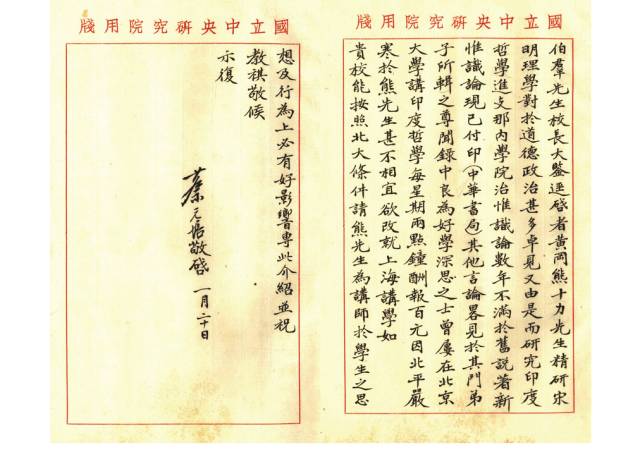 國立中央研究院用牋
伯羣先生校長大鑒逕啓者黃岡熊十力先生精研宋
明理學對於道德政治甚多卓見又由是而研究印度
哲學進支那內學院治惟識論數年不滿於舊說著新
惟識論現已付印(中華書局其他言論畧見於其門弟
子所輯之尊聞錄中良為好學深思之士曾屢在北京
大學講印度哲學每星期兩點鐘酬報百元因北平嚴
寒於熊先生甚不相宜欲改就上海講學如
貴校能按照北大條件請熊先生為講師於學生之思
國立中央研究院用牋
想及行為上必有好影響專此介紹並祝
教祺敬候
示復
蔡元培敬啓 一月二十日